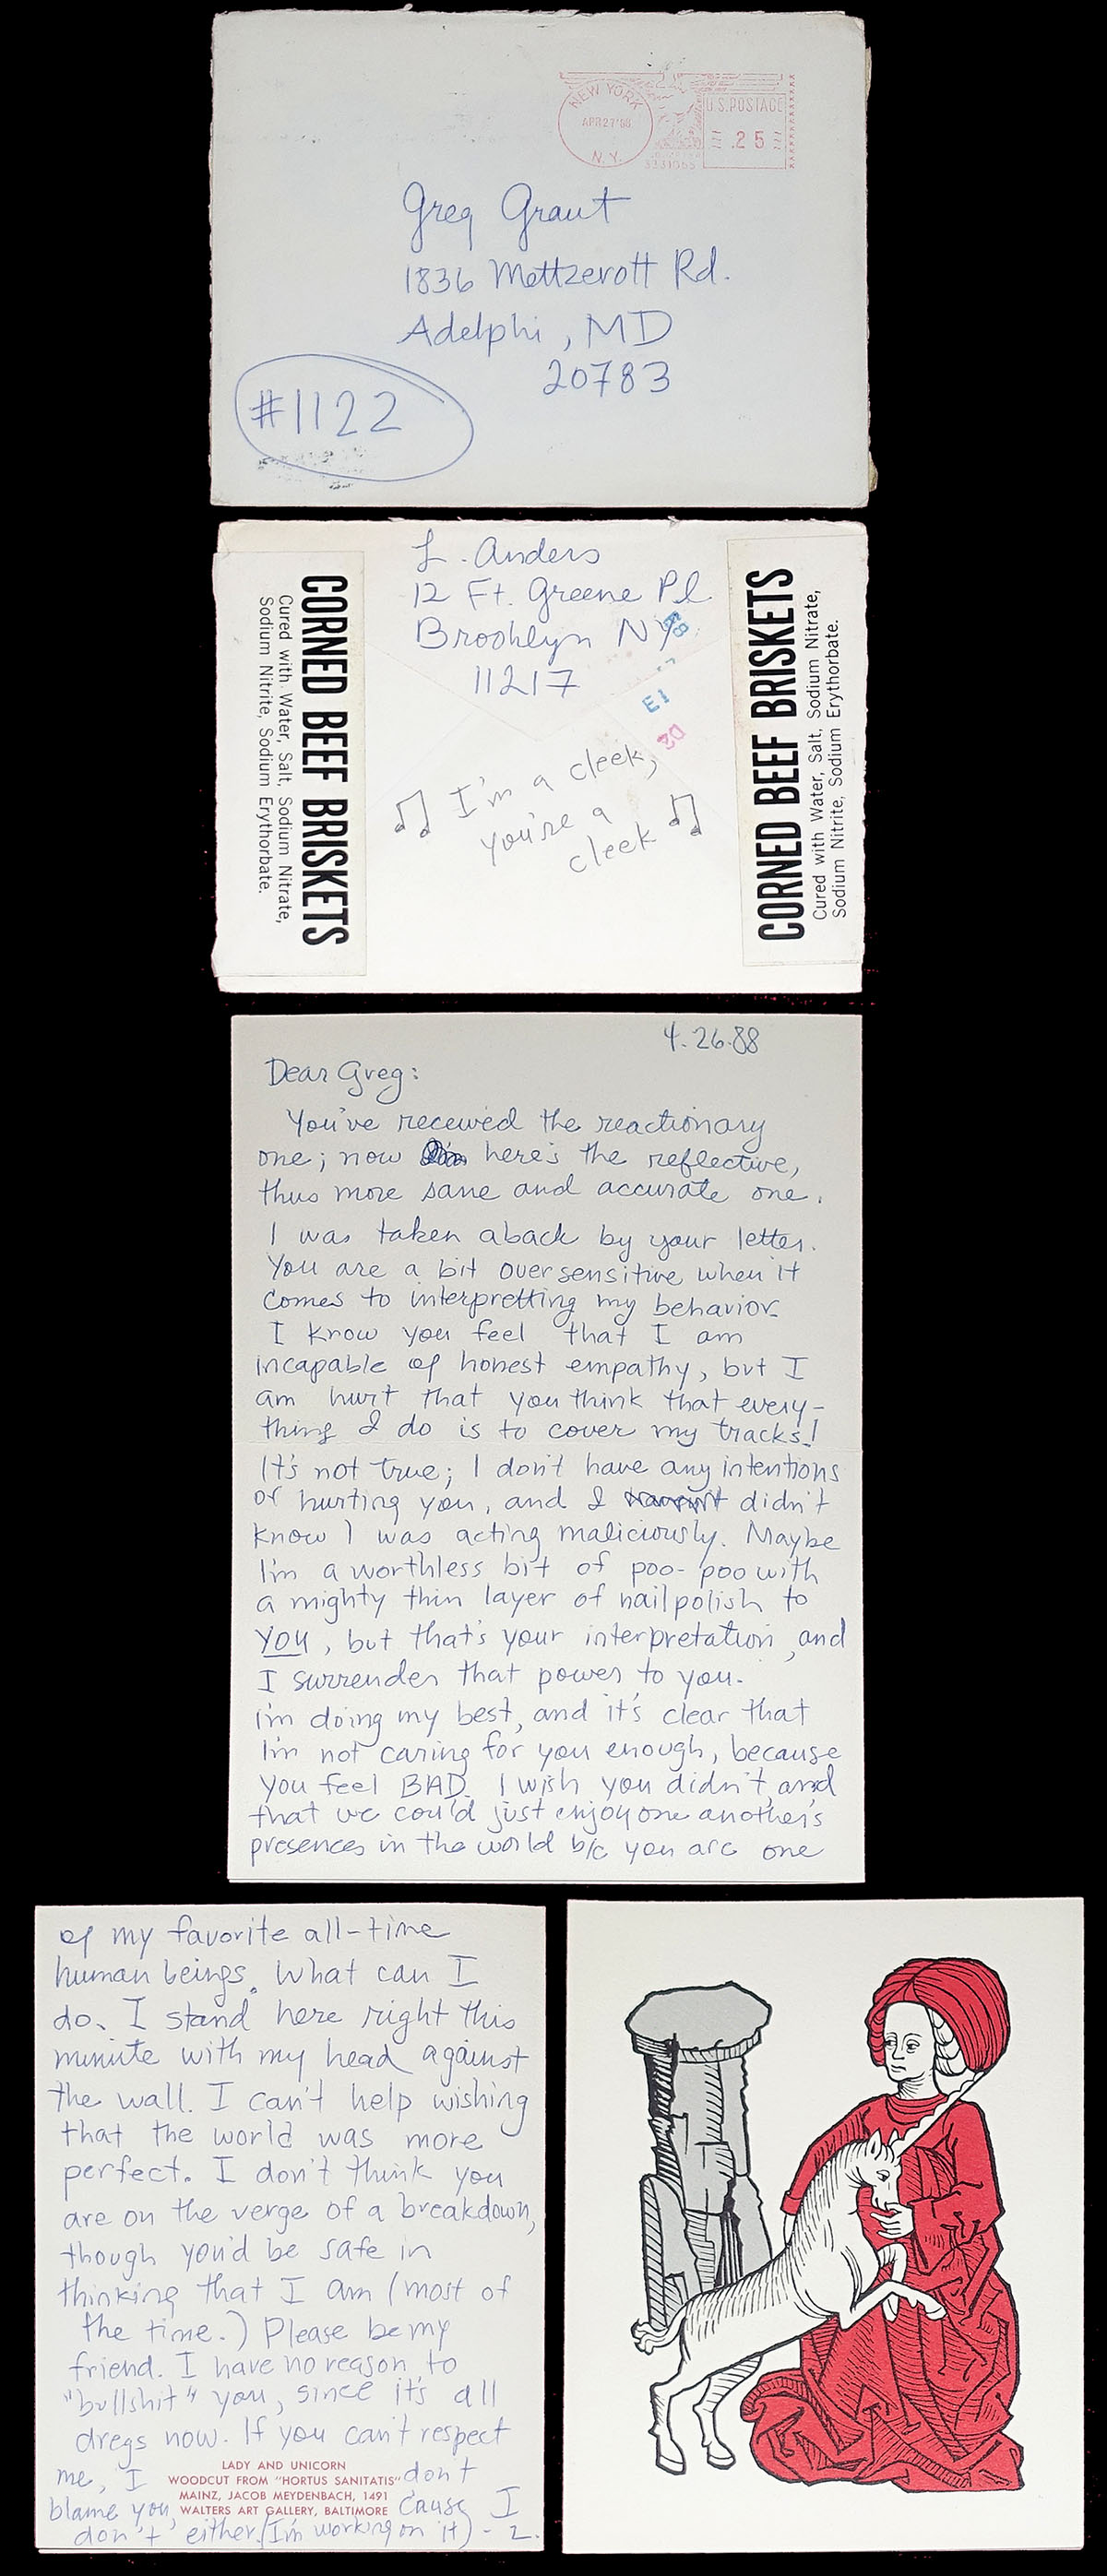 NEW YORK
APR 27 '88
N.Y.
U.S. POSTAGE
.25
Greg Grant
1836 Mettzerott Rd.
Adelphi, MD
20783
#1122
L. Anders
12 Ft. Greene Pl.
Brooklyn NY
11217
E8
E1
D2
♫ I'm a cleek,
you're a
cleek ♫
CORNED BEEF BRISKETS
Cured with Water, Salt, Sodium Nitrate,
Sodium Nitrite, Sodium Erythorbate.
CORNED BEEF BRISKETS
Cured with Water, Salt, Sodium Nitrate,
Sodium Nitrite, Sodium Erythorbate.
4.26.88
Dear Greg:
You've received the reactionary
one; now here's the reflective,
thus more sane and accurate one.
I was taken aback by your letter.
You are a bit oversensitive when it
comes to interpretting my behavior.
I know you feel that I am
incapable of honest empathy, but I
am hurt that you think that every-
thing I do is to cover my tracks!
It's not true; I don't have any intentions
of hurting you, and I didn't
know I was acting maliciously. Maybe
I'm a worthless bit of poo-poo with
a mighty thin layer of nail polish to
you, but that's your interpretation, and
I surrender that power to you.
I'm doing my best, and it's clear that
I'm not caring for you enough, because
you feel BAD. I wish you didn't, and
that we could just enjoy one another's
presences in the world b/c you are one
of my favorite all-time
human beings. What can I
do. I stand here right this
minute with my head against
the wall. I can't help wishing
that the world was more
perfect. I don't think you
are on the verge of a breakdown,
though you'd be safe in
thinking that I am (most of
the time.) Please be my
friend. I have no reason to
"bullshit" you, since it's all
dregs now. If you can't respect
me, I don't
blame you, cause I
don't either. (I'm working on it) - L.
LADY AND UNICORN
WOODCUT FROM "HORTUS SANITATIS"
MAINZ, JACOB MEYDENBACH, 1491
WALTERS ART GALLERY, BALTIMORE